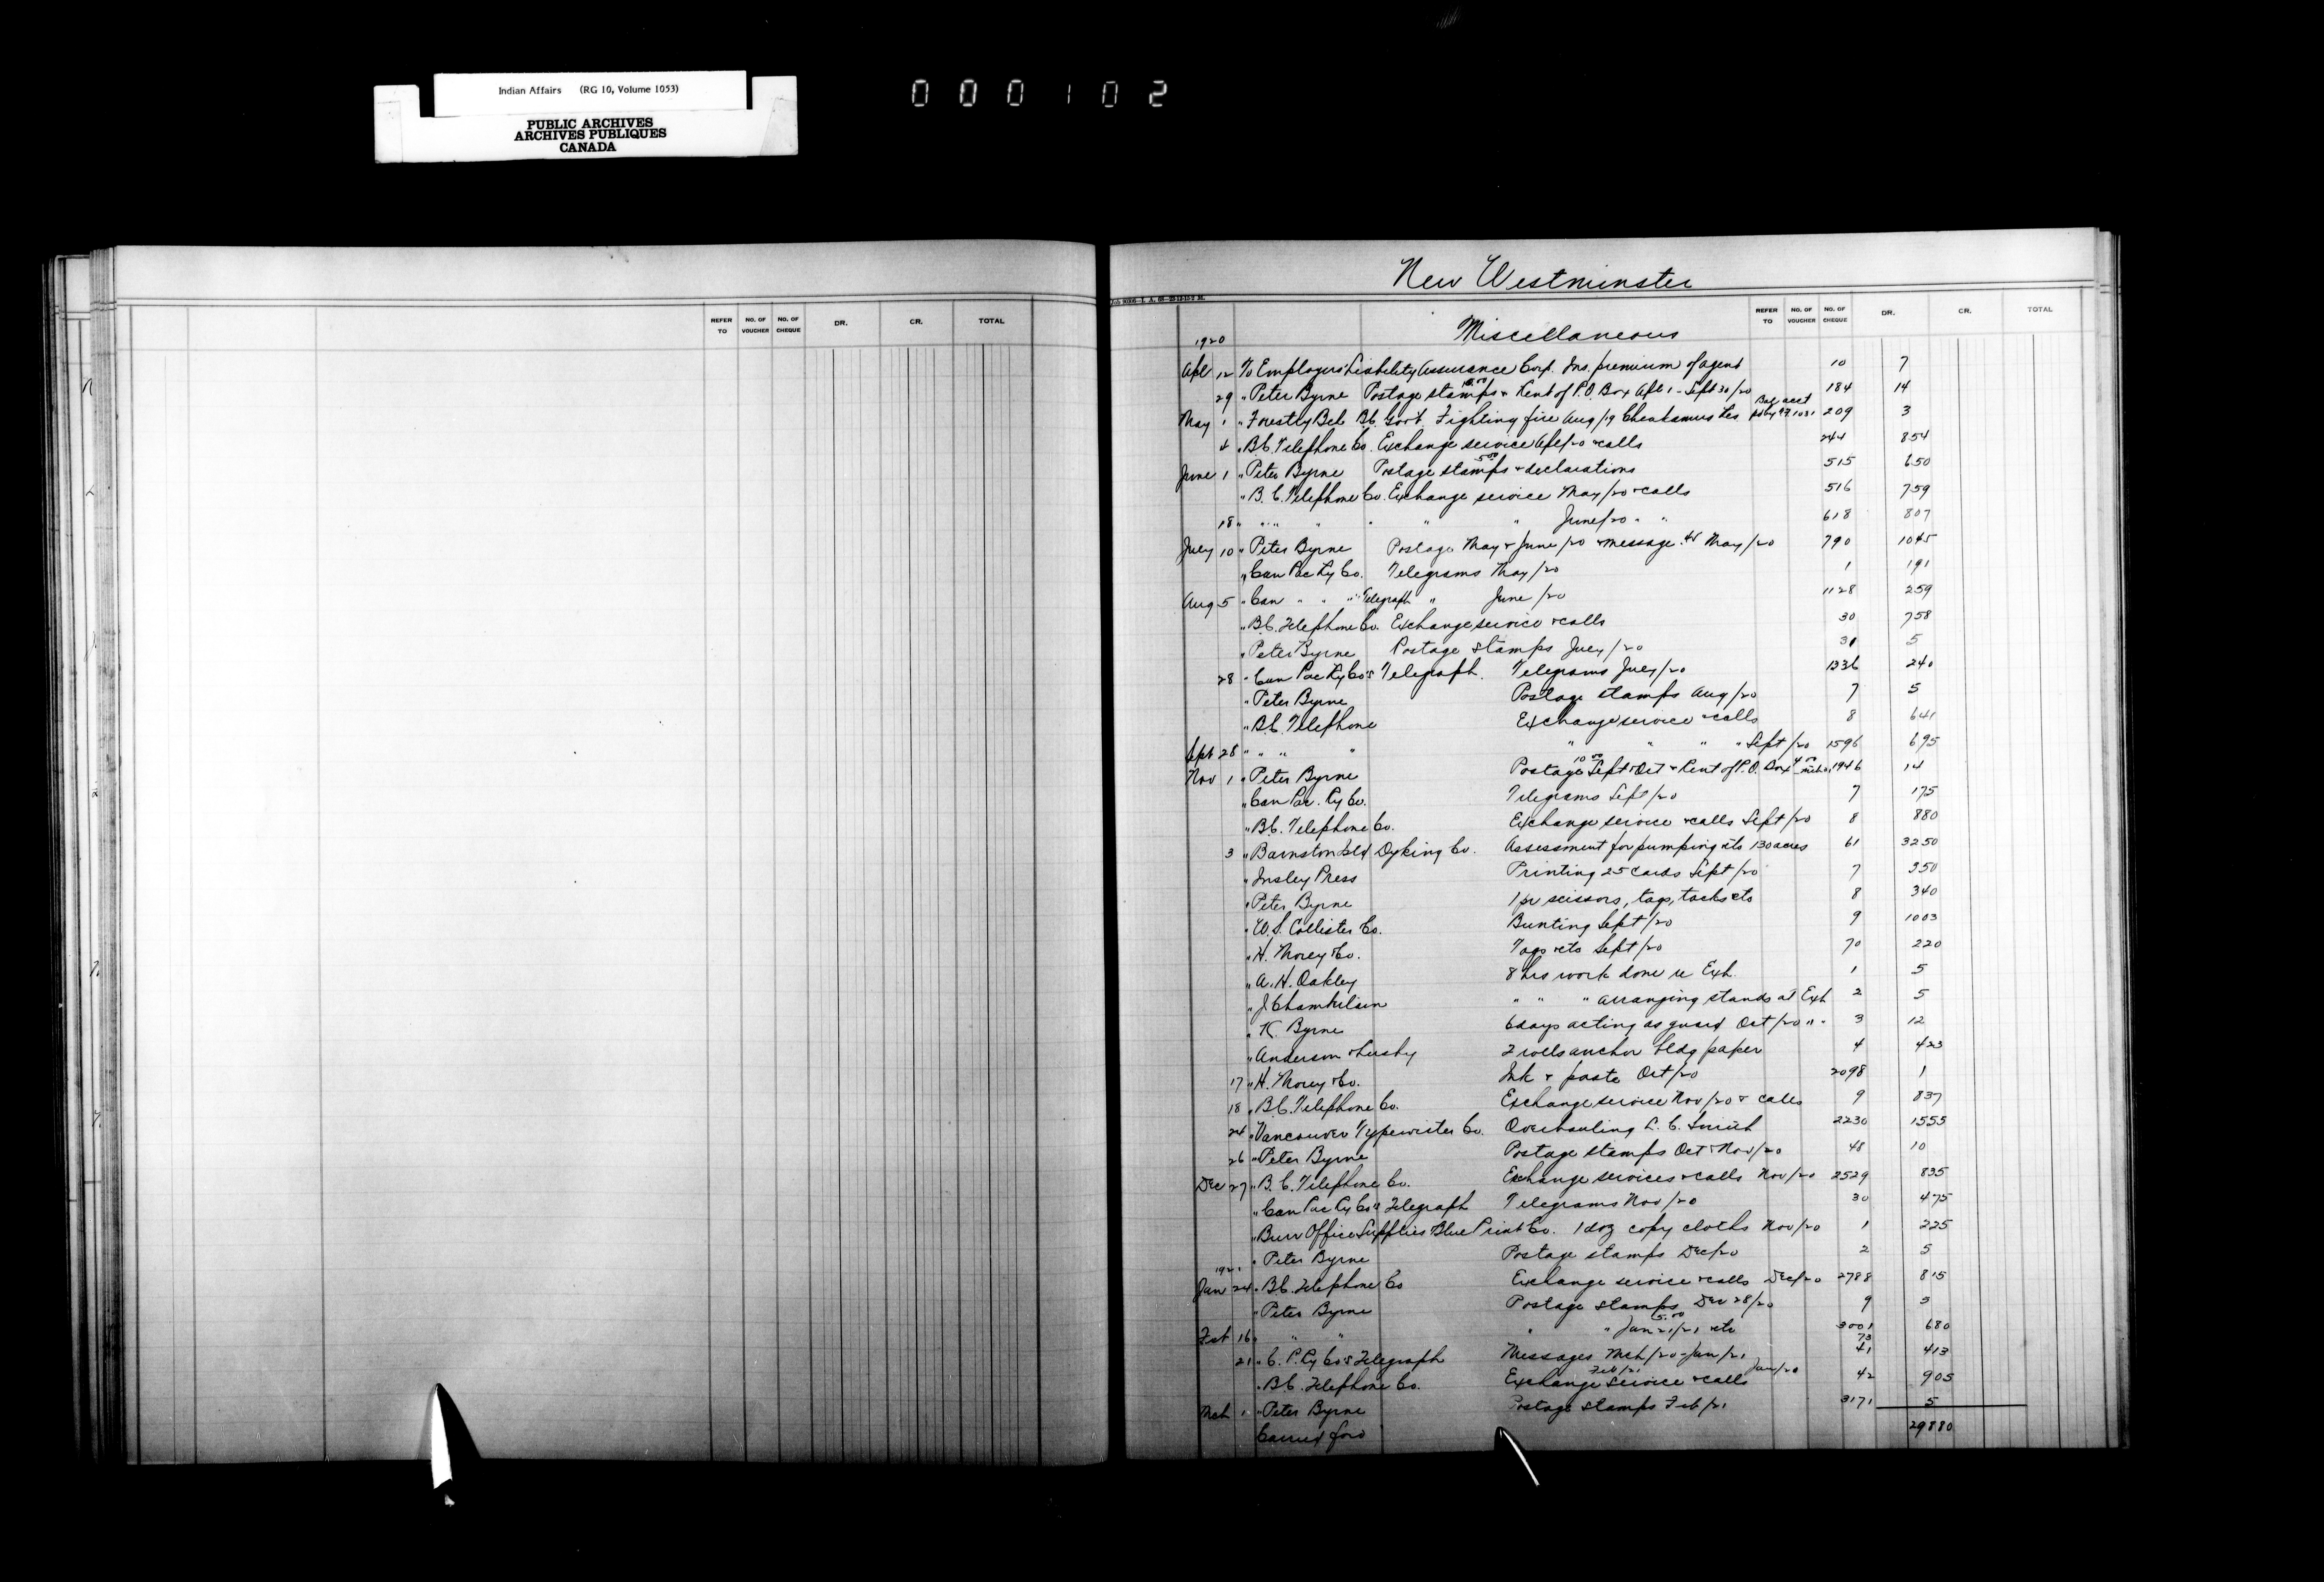 Indian Affairs (RG 10, Volume 1053)
PUBLIC ARCHIVES
ARCHIVES PUBLIQUES
CANADA
000102
REFER TO NO. OF VOUCHER NO. OF CHEQUE DR. CR. TOTAL
New Westminster
REFER TO NO. OF VOUCHER NO. OF CHEQUE DR. CR. TOTAL
Miscellaneous
1920
Apl 12 To Employers Liability Assurance Corp. Ins. premium of agent 10 7
29 " Peter Byrne Postage stamps 10.00 & Rent of P.O. Box Apl 1 - Sept 30/20 184 14
May 1 " Forestry Bch B.C. Govt. Fighting fire Aug/19 Cheakamus Res Bal acct 209 3
4 " B.C. Telephone Co. Exchange service Apl/20 & calls 244 8 54
June 1 " Peter Byrne Postage stamps 5.00 & declarations 515 6 50
" B.C. Telephone Co. Exchange service May/20 & calls 516 7 59
18 " " " " " " June/20 " " 618 8 07
July 10 " Peter Byrne Postage May & June/20 & message May/20 790 10 45
" Can Pac Ry Co. Telegrams May/20 1 1 91
Aug 5 " Can " " " Telegraph " June/20 1128 2 59
" B.C. Telephone Co. Exchange service & calls 30 7 58
" Peter Byrne Postage stamps July/20 31 5
28 " Can Pac Ry Co's Telegraph. Telegrams July/20 1336 2 40
" Peter Byrne Postage stamps Aug/20 7 5
" B.C. Telephone Exchange service & calls 8 6 41
Sept 28 " " " " " " " " Sept/20 1596 6 95
Nov 1 " Peter Byrne Postage 10.00 Sept & Oct & Rent of P.O. Box 4.00 1946 14
" Can Pac. Ry Co. Telegrams Sept/20 7 1 75
" B.C. Telephone Co. Exchange service & calls Sept/20 8 8 80
3 " Barnston Isld Dyking Co. Assessment for pumping etc 130 acres 61 32 50
" Insley Press Printing 25 cards Sept/20 7 3 50
" Peter Byrne 1 pr scissors, tags, tacks etc 8 3 40
" W.S. Collister Co. Bunting Sept/20 9 10 03
" H. Morey & Co. Tags etc Sept/20 70 2 20
" A.H. Oakley 8 hrs work done re Exh. 1 5
" J. Chamberlain " " " arranging stands at Exh 2 5
" K. Byrne 6 days acting as guard Oct/20 " " 3 12
" Anderson & Lusby 2 rolls anchor bldg paper 4 4 23
17 " H. Morey & Co. Ink & paste Oct/20 2098 1
18 " B.C. Telephone Co. Exchange service Nov/20 & calls 9 8 37
24 " Vancouver Typewriter Co. Overhauling L.C. Smith 2230 15 55
26 " Peter Byrne Postage stamps Oct & Nov/20 48 10
Dec 27 " B.C. Telephone Co. Exchange services & calls Nov/20 2529 8 35
" Can Pac Ry Co's Telegraph Telegrams Nov/20 30 4 75
" Burr Office Supplies Blue Print Co. 1 doz copy cloths Nov/20 1 2 25
" Peter Byrne Postage stamps Dec/20 2 5
1921
Jan 24 " B.C. Telephone Co Exchange service & calls Dec/20 2788 8 15
" Peter Byrne Postage stamps Dec 28/20 9 5
Feb 16 " " " " " 5.00 Jan 21/21 etc 3001 6 80
21 " C.P. Ry Co's Telegraph Messages Mch/20 - Jan/21 41 4 13
" B.C. Telephone Co. Exchange service Feb/21 & calls Jan/20 42 9 05
Mch 1 " Peter Byrne Postage stamps Feb/21 3171 5
Carried ford 298 80